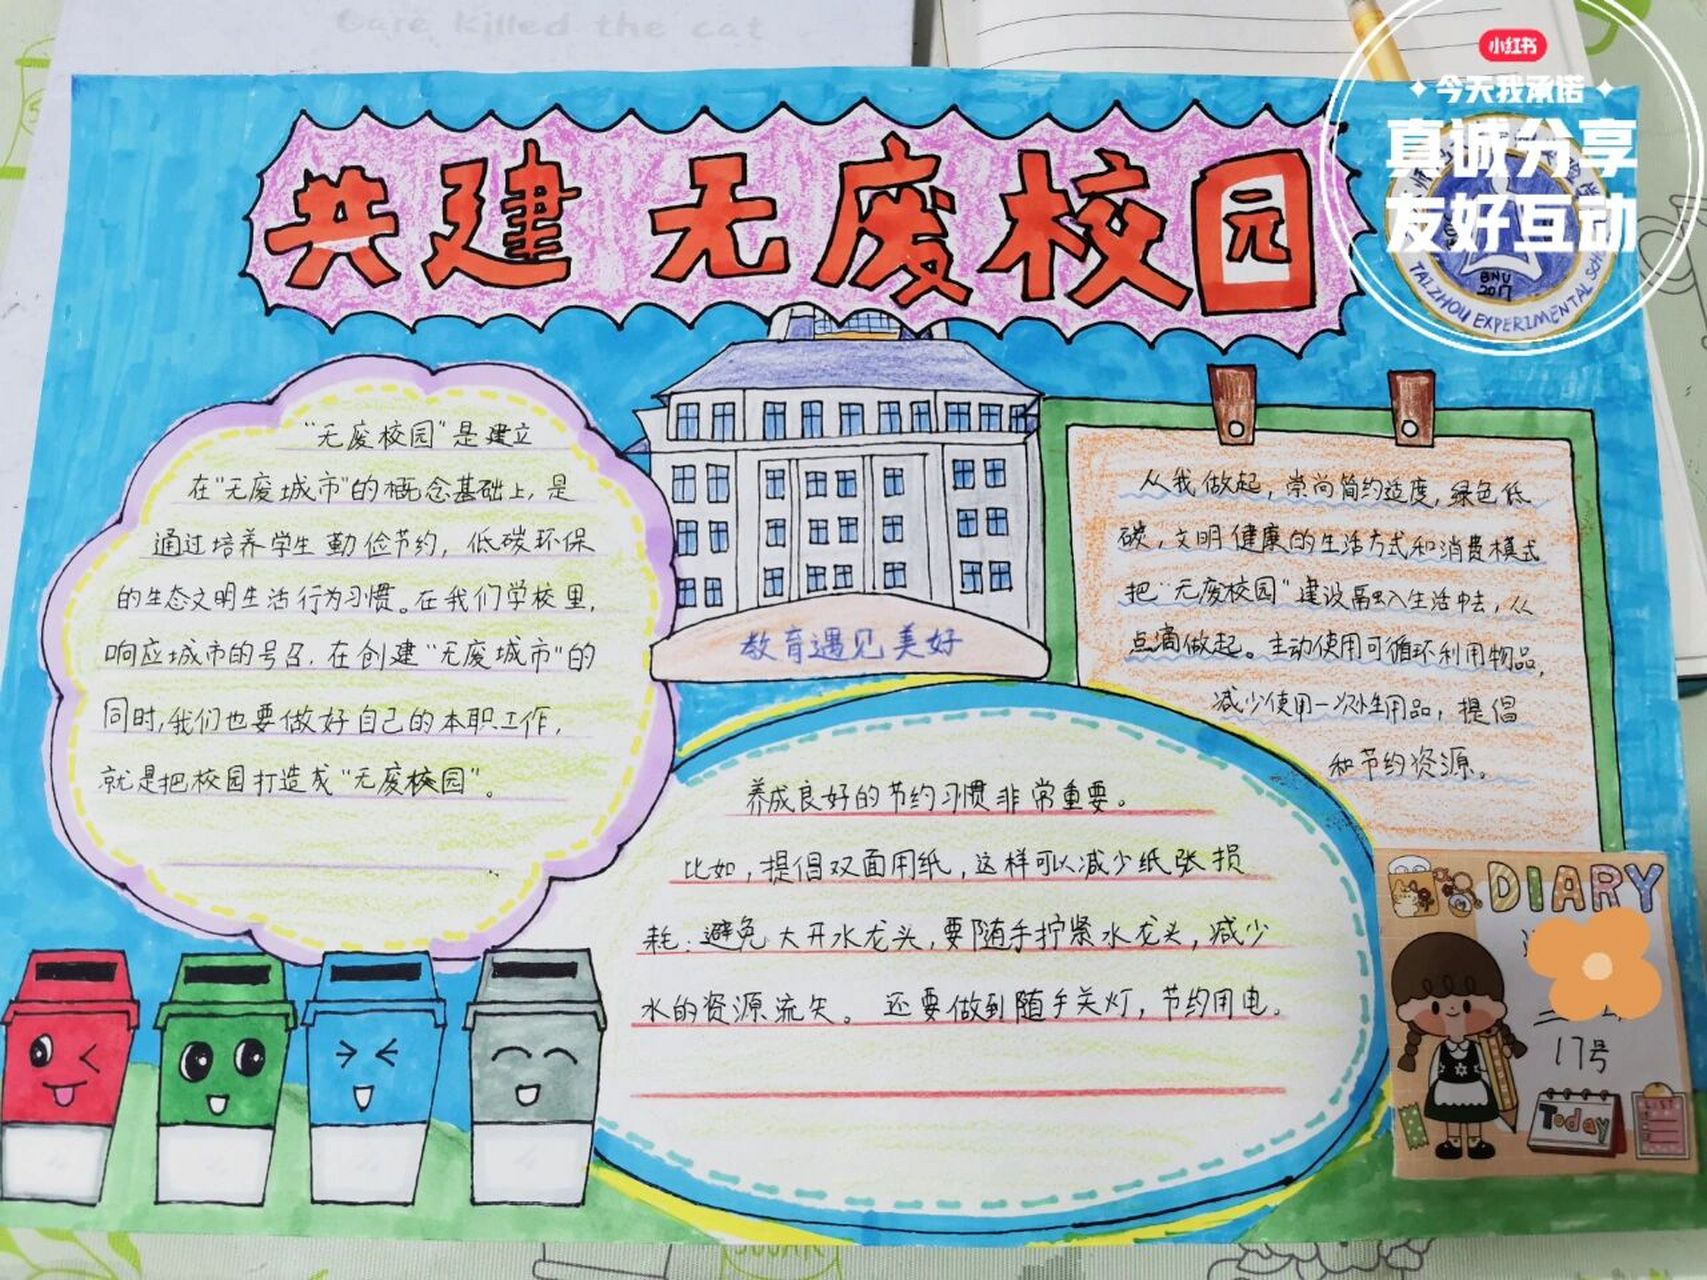 Care killed the cat
小红书
今天我承诺
真诚分享
友好互动
共建 无废校园
BNU
2017
TAIZHOU EXPERIMENTAL SCH
"无废校园"是建立
在"无废城市"的概念基础上,是
通过培养学生勤俭节约,低碳环保
的生态文明生活行为习惯。在我们学校里,
响应城市的号召,在创建"无废城市"的
同时,我们也要做好自己的本职工作,
就是把校园打造成"无废校园"。
教育遇见美好
从我做起,崇尚简约适度,绿色低
碳,文明健康的生活方式和消费模式
把"无废校园"建设融入生活中去,从
点滴做起。主动使用可循环利用物品,
减少使用一次性用品,提倡
和节约资源。
养成良好的节约习惯非常重要。
比如,提倡双面用纸,这样可以减少纸张损
耗;避免大开水龙头,要随手拧紧水龙头,减少
水的资源流失。还要做到随手关灯,节约用电。
DIARY
17号
Today
LIST